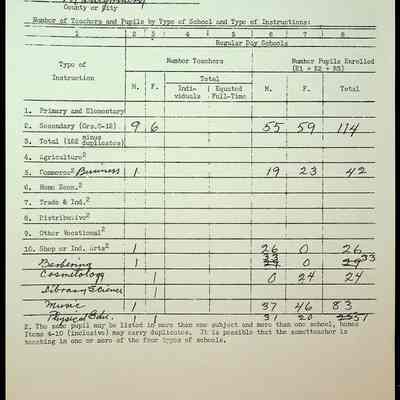 Montgomery
County or City
Number of Teachers and Pupils by Type of School and Type of Instructions:
1 2 3 4 5 6 7 8
Regular Day Schools
Type of Instruction Number Teachers Number Pupils Enrolled (E1 + E2 + R3)
M. F. Total M. F. Total
Indi- viduals Equated Full-Time
1. Primary and Elementary
2. Secondary (Grs. 8-12) 9 6 55 59 114
3. Total (1&2 minus duplicates)
4. Agriculture2
5. Commerce2 Business 1 19 23 42
6. Home Econ.2
7. Trade & Ind.2
8. Distributive2
9. Other Vocational2
10. Shop or Ind. Arts2 1 26 0 26
Barbering 1 33 0 33
Cosmetology 1 0 24 24
Library Science 1
Music 1 37 46 83
Physical Edu. 1 1 31 20 51
2. The same pupil may be listed in more than one subject and more than one school, hence
Items 4-10 (inclusive) may carry duplicates. It is possible that the same teacher is
teaching in one or more of the four types of schools.